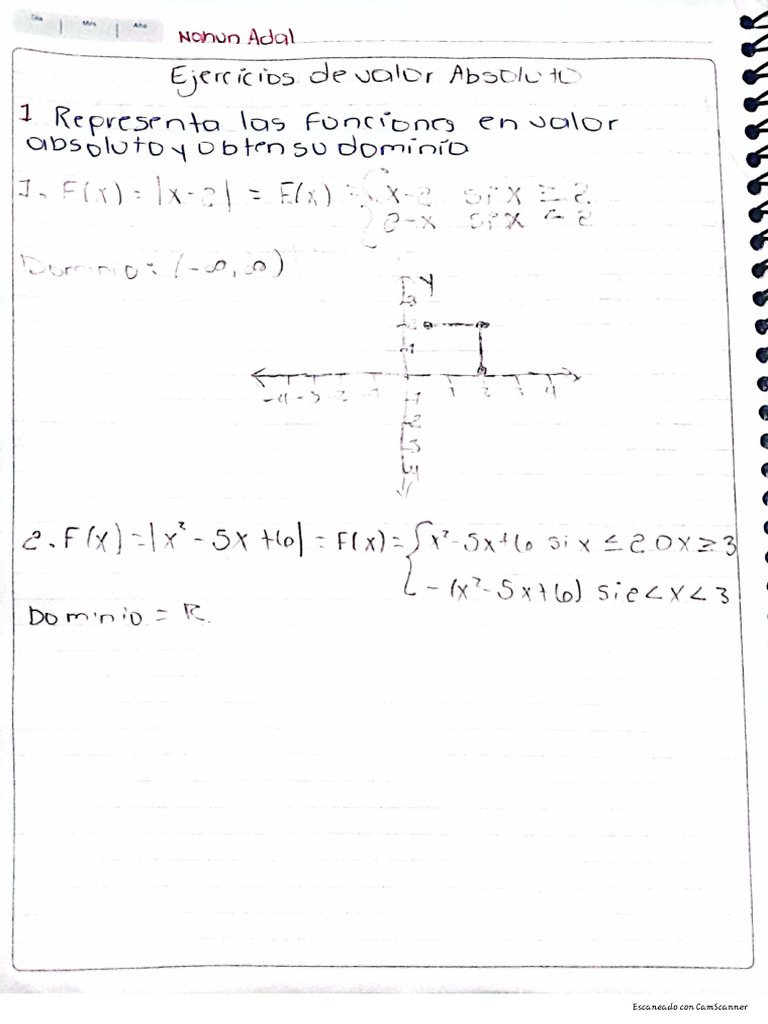 Día Mes Año
Nahun Adal
Ejercicios de valor Absoluto
1 Representa las funciones en valor
absoluto y obten su dominio
1. F(x) = |x-2| = F(x) = { x-2 si x ≥ 2
2-x si x < 2
Dominio: (-∞, ∞)
Y
3
2
1
-4 -3 -2 -1 1 2 3 4
-1
2
3
2. F(x) = |x² - 5x + 6| = F(x) = { x² - 5x + 6 si x ≤ 2 o x ≥ 3
-(x² - 5x + 6) si 2 < x < 3
Dominio = R.
Escaneado con CamScanner